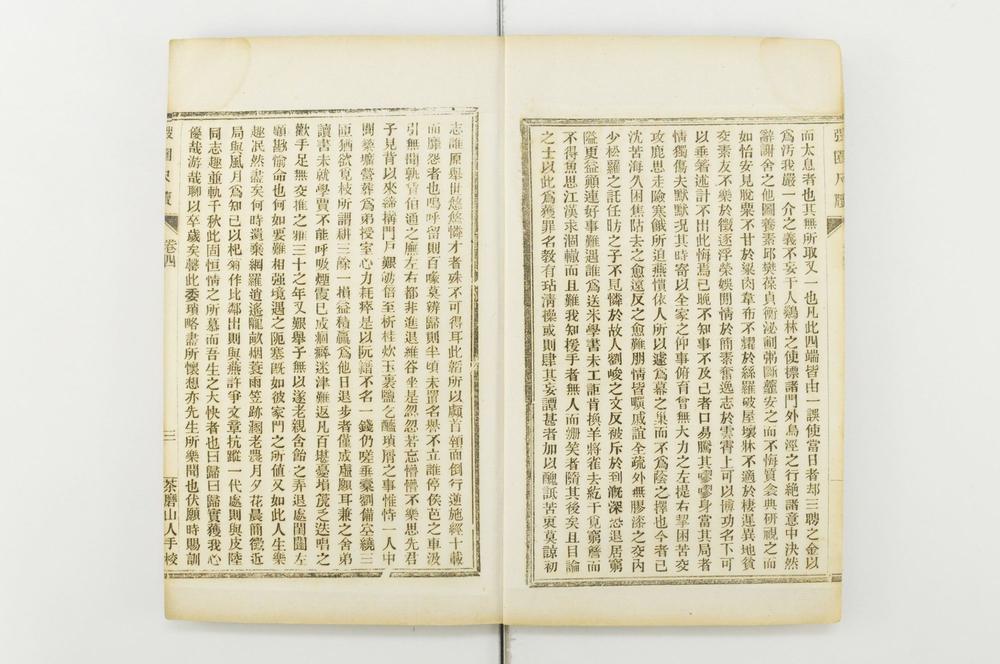 而太息者也其無所取又一也凡此四端皆由一誤使當日者却三聘之金以
為污我嚴一介之義不妄于人鷄林之使標諸門外鳥涇之行絕諸意中決然
辭謝舍之他圖養素邱樊葆貞衡泌劚粥斷虀安之而不悔質衾典研視之而
如怡安見脫粟不甘於粱肉韋布不耀於絲羅破屋壞牀不適於棲遲異地貧
交素友不樂於徵逐浮榮娛情於簡素奮逸志於雲霄上可以博功名下可
以垂著述計不出此悔焉已晚不知事不及己者口易騰其嘐嘐身當其局者
情獨傷夫默默況其時寄以全家之仰事俯育曾無大力之左提右挈困苦交
攻鹿思走險寒餓所迫燕慣依人所以遽為幕之巢而不為蔭之擇也今者已
沈苦海久困焦阽去之愈遠反之愈難朋情皆嘆戚誼全疏外無膠漆之交內
少松蘿之託任昉之子不見憐於故人劉峻之文反被斥於到漑深恐退居窮
隘更益顛連好事難遇誰為送米學書未工詎肯換羊將雀去紇干覓窮簷而
不得魚思江漢求涸轍而且難我知援手者無人而姍笑者隨其後矣且目論
之士以此為獲罪名教有玷清操或則肆其妄譚甚者加以醜詆苦衷莫諒初
志誰原舉世悠悠憐才者殊不可得耳此韜所以顧首領而倒行遽施經十載
而靡怨者也嗚呼留則百喙莫辨歸則半頃未置名譽不立誰停侯芭之車汲
引無聞孰賃伯通之廡左右都非進退維谷坐是忽忽若忘懵懵不樂思先君
子見背以來締搆門戶艱劬倍至析桂炊玉裏鹽之醯瑣屑之事惟恃一人中
間築壙營葬為弟授室心力耗瘁是以阮譜不名一錢仍嗟垂橐劉備在繞三
匝猶欲覓枝所謂耕三餘一損益精贏為他日退步者僅成虛願耳兼之舍弟
讀書未就學賈不能呼吸煙霞已成痼癖迷津難返凡百堪憂塤篪乏迭唱之
歡手足無交推之雅三十之年又艱舉子無以遂老親含飴之弄退處閨闥左
顧尠愉命也何如要難相強境遇之阨塞既如彼家門之所值又如此人生樂
趣泯然盡矣何時遺棄網羅逍遙隴畝烟蓑雨笠跡溷老農月夕花晨簡徵近
局與風月為知己以杞菊作比鄰出則與燕許爭文章抗蹤一代處則與皮陸
同志趣重軌千秋此固恒情之所慕而吾生之大快者也曰歸曰歸實獲我心
優哉游哉聊以卒歲矣馨此委瑣略盡所懷想亦先生所樂聞也伏願時賜訓
卷四
三
茶磨山人手校